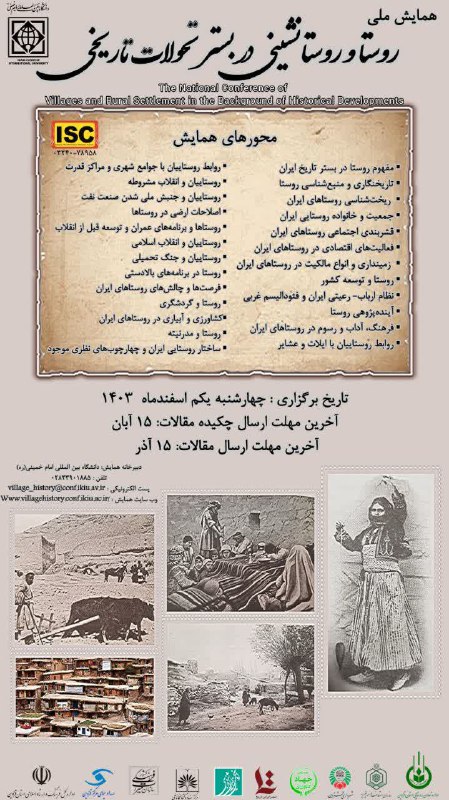 همایش ملی
روستا و روستانشینی در بستر تحولات تاریخی
The National Conference of
Villages and Rural Settlement in the Background of Historical Developments
IMAM KHOMEINI
INTERNATIONAL UNIVERSITY
ISC
۰۳۲۴۰-۷۸۹۵۸
محورهای همایش
مفهوم روستا در بستر تاریخ ایران
تاریخنگاری و منبع‌شناسی روستا
ریخت‌شناسی روستاهای ایران
جمعیت و خانواده روستایی ایران
قشربندی اجتماعی روستاهای ایران
فعالیت‌های اقتصادی در روستاهای ایران
زمینداری و انواع مالکیت در روستاهای ایران
روستا و توسعه کشور
نظام ارباب-رعیتی ایران و فئودالیسم غربی
آینده‌پژوهی روستا
فرهنگ، آداب و رسوم در روستاهای ایران
روابط روستاییان با ایلات و عشایر
روابط روستاییان با جوامع شهری و مراکز قدرت
روستاییان و انقلاب مشروطه
روستاییان و جنبش ملی شدن صنعت نفت
اصلاحات ارضی در روستاها
روستاها و برنامه‌های عمران و توسعه قبل از انقلاب
روستاییان و انقلاب اسلامی
روستاییان و جنگ تحمیلی
روستا در برنامه‌های بالادستی
فرصت‌ها و چالش‌های روستاهای ایران
روستا و گردشگری
کشاورزی و آبیاری در روستاهای ایران
روستا و مدرنیته
ساختار روستایی ایران و چهارچوب‌های نظری موجود
تاریخ برگزاری : چهارشنبه یکم اسفندماه ۱۴۰۳
آخرین مهلت ارسال چکیده مقالات: ۱۵ آبان
آخرین مهلت ارسال مقالات: ۱۵ آذر
دبیرخانه همایش: دانشگاه بین المللی امام خمینی(ره)
تلفن : ۰۲۸۳۳۹۰۱۸۸۵
پست الکترونیکی : village_history@conf.ikiu.av.ir
وب سایت همایش : Www.villagehistory.conf.ikiu.ac.ir